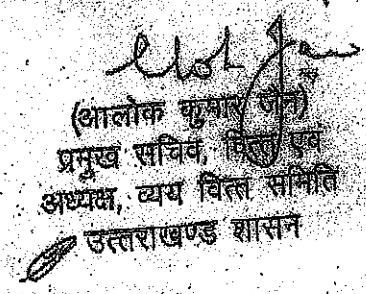 (आलोक कुमार जैन)
प्रमुख सचिव, वित्त एवं
अध्यक्ष, व्यय वित्त समिति
उत्तराखण्ड शासन